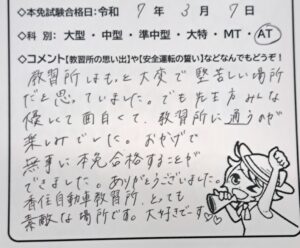 ◇本免試験合格日:令和 7年 3月 7日
◇科 別: 大型・中型・準中型・大特・MT・AT
◇コメント【教習所の思い出】や【安全運転の誓い】などなんでもどうぞ!
教習所はもっと大変で堅苦しい場所
だと思っていました。でも先生方みんな
優しくて面白くて、教習所に通うのが
楽しみでした。おかげで
無事に本免合格することが
できました。ありがとうございました。
香住自動車教習所、とっても
素敵な場所です。大好きでーす